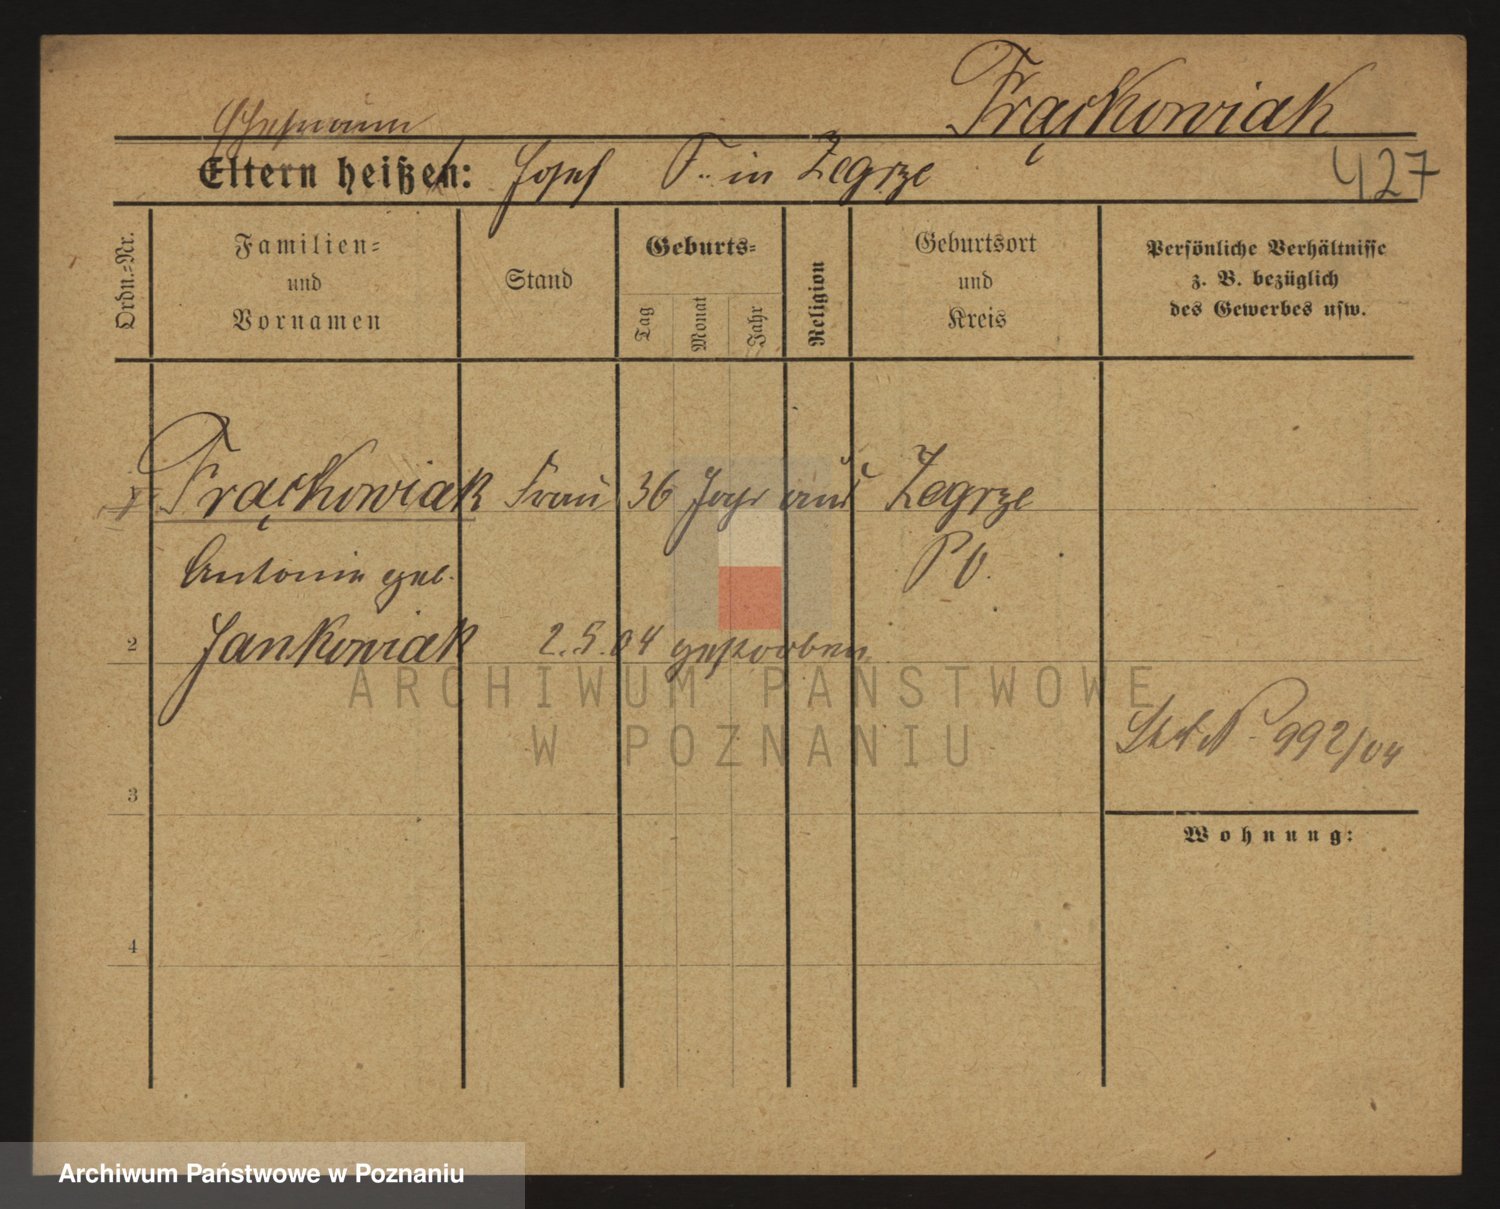 Frąckowiak
Ehemann
Eltern heißen: Josef F. in Zegrze
427
Ordn.=Nr.
Familien=
und
Vornamen
Stand
Geburts=
Tag
Monat
Jahr
Religion
Geburtsort
und
Kreis
Persönliche Verhältnisse
z. B. bezüglich
des Gewerbes usw.
Frąckowiak Frau 36 Jahr aus Zegrze
Antonie geb. PO.
2 Jankowiak 2.5.04 gestorben
ARCHIWUM PAŃSTWOWE
W POZNANIU
992/04
3
Wohnung:
4
Archiwum Państwowe w Poznaniu